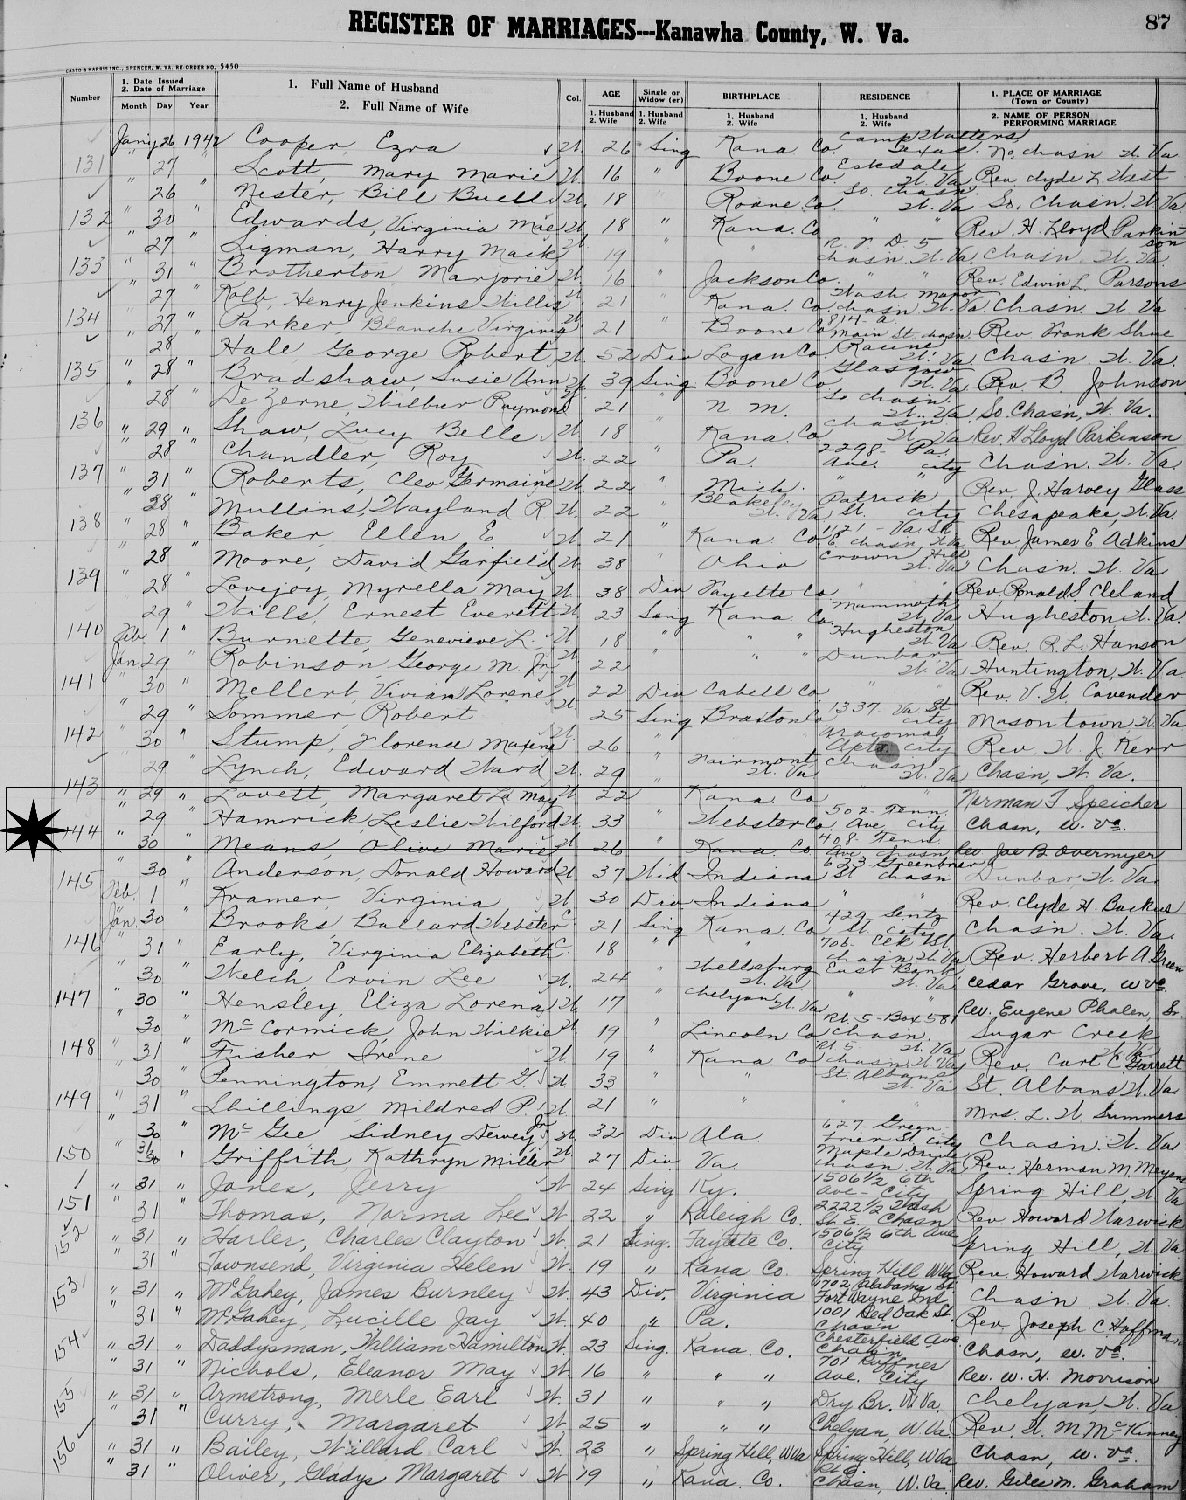 REGISTER OF MARRIAGES---Kanawha County, W. Va.
87
CASTO & HARRIS INC., SPENCER, W. VA. RE-ORDER NO. 5450
Number 1. Date Issued 2. Date of Marriage Month Day Year 1. Full Name of Husband 2. Full Name of Wife Col. AGE 1. Husband 2. Wife Single or Widow (er) 1. Husband 2. Wife BIRTHPLACE 1. Husband 2. Wife RESIDENCE 1. Husband 2. Wife 1. PLACE OF MARRIAGE (Town or County) 2. NAME OF PERSON PERFORMING MARRIAGE
26 1942 Cooper, Ezra W. 26 Sing Kana Co Texas. No. Chasn W. Va
131 " 27 " Scott, Mary Marie W. 16 " Boone Co. Eskdale W. Va Rev Clyde L West
26 Nester, Bill Buell W. 18 Roane Co. So. Chasn. W. Va So. Chasn. W. Va
132 " 30 " Edwards, Virginia Mae W. 18 " Kana. Co " " Rev H. Lloyd Parkinson
27 Sigman, Harry Mack W. 19 " " R. F. D. 5 Chasn. W. Va Chasn. W. Va
133 " 31 " Brotherton Marjorie W. 16 " Jackson Co. " " Rev. Edwin L Parsons
27 Kolb, Henry Jenkins Willis W 21 " Kana. Co. Chasn. W. Va Chasn. W. Va
134 " 27 " Parker, Blanche Virginia W 21 " Boone Co 814-a Main St. Chasn. Rev Frank Shue
28 Hale, George Robert, W. 52 Div Logan Co Racine, W. Va Chasn. W. Va.
135 " 28 " Bradshaw, Susie Ann W 39 Sing Boone Co Glasgow W. Va Rev B. Johnson
28 DeZerne, Wilbur Raymond W 21 " N. M. So Chasn. W. Va So. Chasn, W. Va.
136 " 29 " Shaw, Lucy Belle W. 18 " Kana. Co Chasn. W. Va Rev. H Lloyd Parkinson
28 Chandler, Roy W. 22 " Pa. 2298- Pa. Ave. City Chasn. W. Va
137 " 31 " Roberts, Cleo Germaine W. 22 " Mich. " " Rev. J. Harvey Glass
28 Mullins, Wayland R W. 22 " Blake W. Va Patrick St. City Chesapeake, W. Va
138 " 28 " Baker, Ellen E W. 21 " Kana. Co 1121 - Va St. E. Chasn. W. Va Rev James E Adkins
28 Moore, David Garfield, W. 38 " Ohio Crown Hill W. Va Chasn. W. Va
139 " 28 " Lovejoy, Myrella May W. 38 Div Fayette Co Rev Ronald S Cleland
29 " Wills, Ernest Everett W. 23 Sing Kana Co. Mammoth W. Va Hugheston W. Va.
140 Feb 1 " Burnette, Genevieve L. W 18 " " " Hugheston W. Va Rev. R. L. Hanson
Jan 29 " Robinson, George M. Jr. W 22 " " " Dunbar W. Va Huntington, W. Va
141 " 30 " Mellert Vivian Lorene W 22 Div Cabell Co " " Rev. V. W Cavender
29 " Sommer Robert W 25 Sing Braxton Co 1337 Va St City Masontown W. Va
142 " 30 " Stump, Florence Maxine W 26 " " Apts. City Rev. W. J. Kerr
29 Lynch, Edward Ward W. 29 " Fairmont W. Va Chasn W. Va Chasn, W. Va.
143 " 29 " Lovett, Margaret La May W. 22 " Kana Co " " Norman F Speicher
29 Hamrick, Leslie Wilford W. 33 " Webster Co 502- Tenn Ave City Chasn, W. Va.
144 " 30 Means, Olive Marie W. 26 " Kana. Co. 408- Tenn Ave. Chasn Rev Joe B. Overmyer
30 Anderson, Donald Howard W 37 Wid Indiana 623 Greenbrier St Chasn Dunbar, W. Va.
145 Feb. 1 " Kramer, Virginia W 30 Div Indiana " Rev. Clyde H Backus
Jan 30 " Brooks Ballard Webster C 21 Sing Kana. Co 429 Lentz St. City Chasn. W. Va.
146 " 31 " Early, Virginia Elizabeth C. 18 " " " 706- Elk St. Chasn W. Va Rev. Herbert A Green
30 Welch, Ervin Lee W. 24 " Wellsburg W. Va East Bank W. Va Cedar Grove, W Va.
147 " 30 " Hensley, Eliza Lorena W 17 " Chelyan W. Va " " Rev. Eugene Phalen, Sr.
30 McCormick, John Wilkie W 19 " Lincoln Co Rt. 5-Box 581 Chasn. Sugar Creek
148 " 31 " Fisher Irene W 19 " Kana Co Rt 5 Chasn W. Va Rev. Carl C Garrett
30 Pennington, Emmett G. W 33 " " St Albans W. Va St. Albans W. Va
149 " 31 " Shillings Mildred P. W. 21 " " " " Mrs. L. W Summers
30 McGee, Sidney Dewey Jr W. 32 Div Ala 627 Green City Chasn. W. Va
150 " 31 " Griffith Kathryn Miller W 27 Div Va. Maple Drive Chasn. W. Va Rev. Herman M.
" 31 " Jones, Jerry W 24 Sing Ky. 1506 1/2 6th Ave- City Spring Hill, W. Va
151 31 Thomas, Norma Lee W. 22 " Raleigh Co. 2222 1/2 Wash St. E. Chasn Rev Howard Warwick
152 " 31 " Harler, Charles Clayton W. 21 Sing. Fayette Co. 1506 1/2 6th Ave City Spring Hill, W. Va
" 31 " Townsend, Virginia Helen W. 19 " Kana Co. Spring Hill W Va Rev. Howard Warwick
153 " 31 " McGahey, James Burnley W. 43 Div. Virginia 1702 Alabama St. Fort Wayne Ind Chasn W. Va.
" 31 " McGahey, Lucille Jay W. 40 " Pa. 1001 Red Oak St. Chasn Rev. Joseph C. Hoffman
154 " 31 " Daddysman, William Hamilton W. 23 Sing. Kana Co. Chesterfield Ave Chasn Chasn, W. Va.
" 31 " Nichols, Eleanor May W 16 " " " 701 Ruffner Ave. City Rev. W. H. Morrison
155 " 31 " Armstrong, Merle Earl W. 31 " " " Dry Br. W. Va. Chelyan, W. Va
" 31 Curry, Margaret W. 25 " " " Chelyan, W. Va. Rev. W. M McKinney
156 " 31 " Bailey, Willard Carl W. 23 " Spring Hill, W Va Spring Hill, W Va Chasn, W. Va.
" 31 " Oliver, Gladys Margaret W 19 " Kana. Co. Chasn, W. Va. Rev. Giles M. Graham